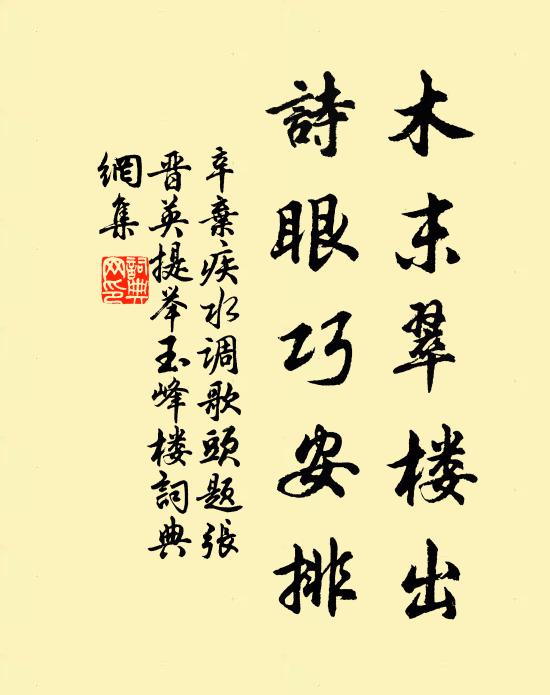 木末翠楼出
詩眼巧安排
辛棄疾水调歌頭题張
晋英提举玉峰楼詞典
網集
詞典
网印